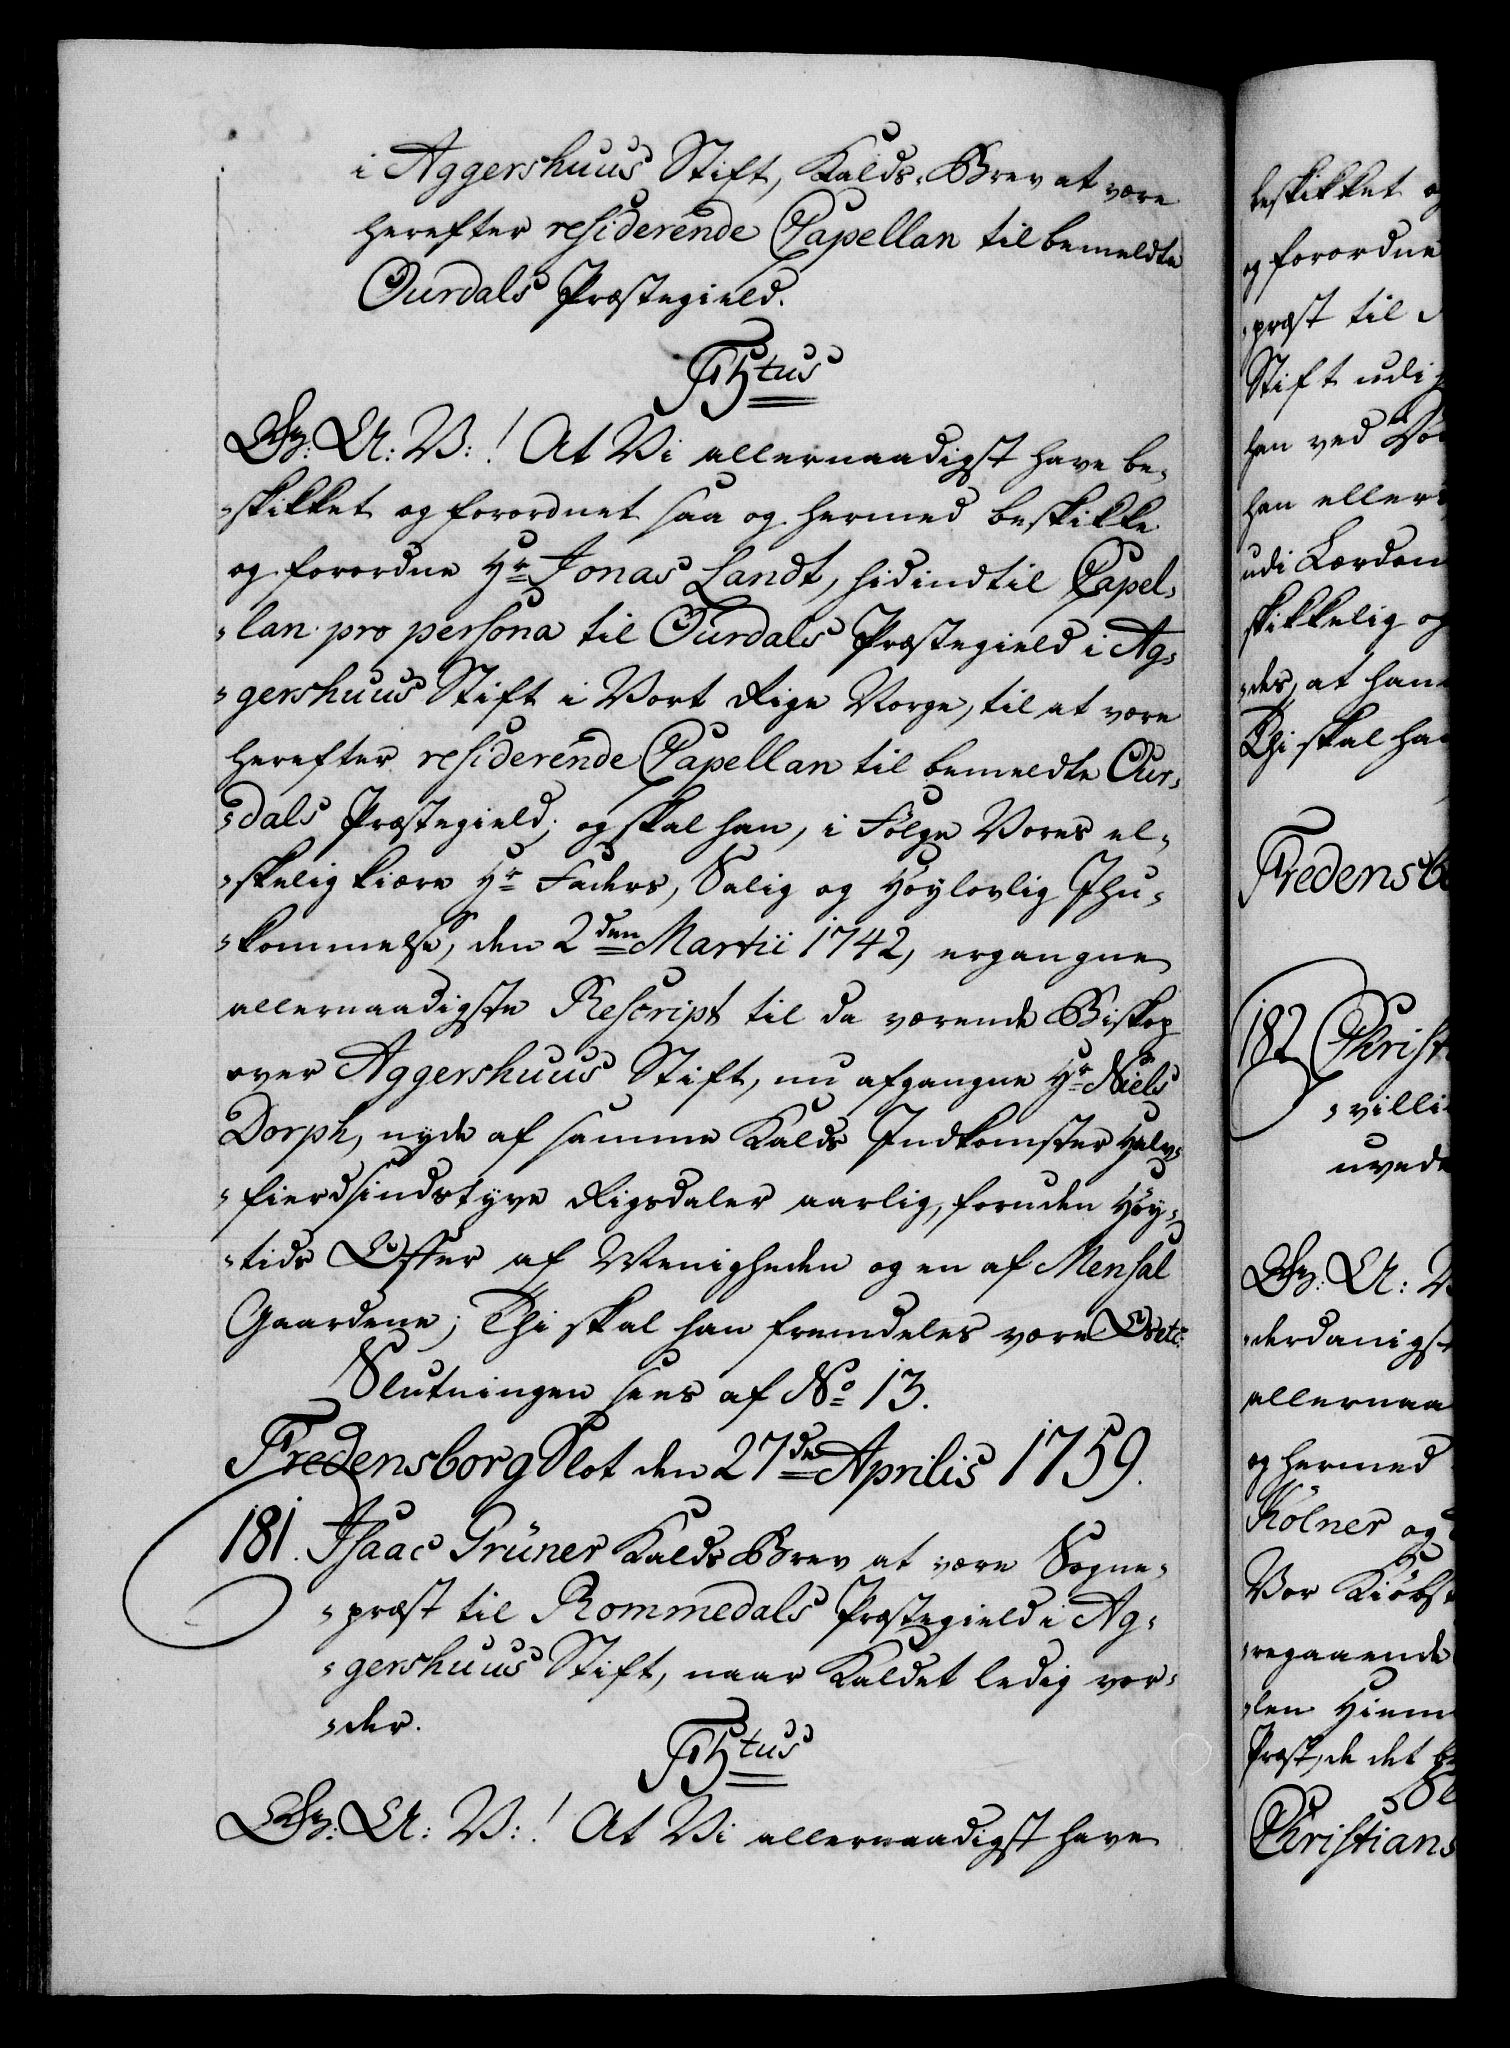 i Aggershuus Stift, Kalds-Brev at være
herefter residerende Capellan til bemeldte
Ourdals Præstegield.
F5tus
G: A: V:! At Vi allernaadigst have be-
-skikket og forordnet saa og hermed beskikke
og forordne Hr Jonas Landt, hidindtil Capel-
-lan pro persona til Ourdals Præstegield i Ag-
-gershuus Stift i Vort Rige Norge, til at være
herefter residerende Capellan til bemeldte Our-
-dals Præstegield; og skal han, i Følge Vores el-
-skelig kiære Hr Faders, Salig og Høylovlig Ihu-
-kommelse, den 2den Martii 1742, ergangne
allernaadigste Rescript til da værende Biskop
over Aggershuus Stift, nu afgangne Hr Niels
Dorph, nyde af samme Kalds Indkomster Halv-
-fierdsindstyve Rigsdaler aarlig, foruden Høy-
-tids Offer af Menigheden og en af Mensal
Gaardene; Thi skal han fremdeles være etc:
Slutningen sees af No 13.
Fredensborg Slot den 27de Aprilis 1759.
181. Isaac Grüner Kalds Brev at være Sogne-
-præst til Rommedals Præstegield i Ag-
-gershuus Stift, naar Kaldet ledig vor-
-der.
F5tus
G: A: V:! At Vi allernaadigst have
beskikket og
og forordne
-præst til
Stift udi
han ved
han ellers
udi Lærdom
skikkelig og
-des, at han
Thi skal han
Fredensb
182 Christ
-villi
uved
G: A: V
-derdanigst
allernaa
og hermed
Kølner og
Vor Kiøbst
-regaaende
-len Hiem
Præst, de det
Christians